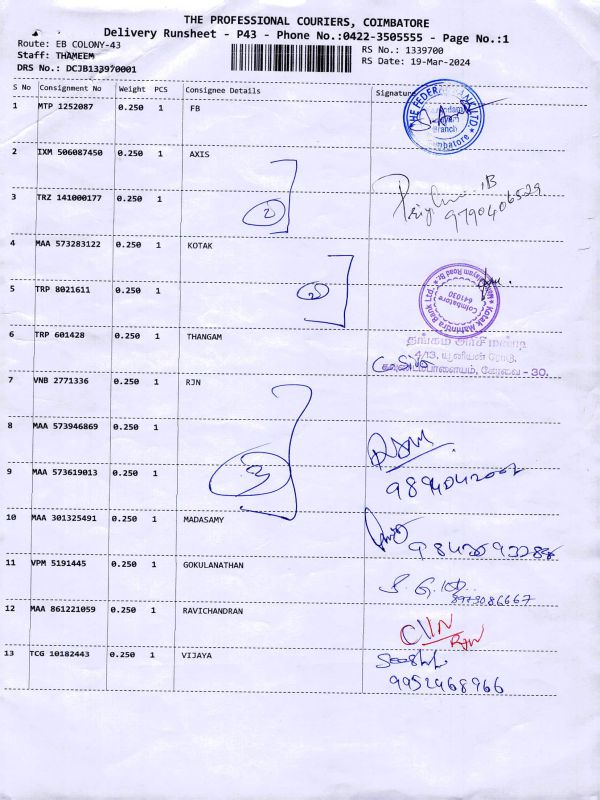 THE PROFESSIONAL COURIERS, COIMBATORE
Delivery Runsheet - P43 - Phone No.:0422-3505555 - Page No.:1
Route: EB COLONY-43
RS No.: 1339700
Staff: THAMEEM
RS Date: 19-Mar-2024
DRS No.: DCJB133970001
S No Consignment No Weight PCS Consignee Details Signature
1 MTP 1252087 0.250 1 FB
THE FEDERAL BANK LTD.
Branch
Coimbatore
2 IXM 506087450 0.250 1 AXIS
3 TRZ 141000177 0.250 1
2
9790406529
4 MAA 573283122 0.250 1 KOTAK
5 TRP 8021611 0.250 1
2
Kotak Mahindra Bank Ltd.
Coimbatore
641030
6 TRP 601428 0.250 1 THANGAM
தங்கம் அரிசி மண்டி
4/13, யூனியன் ரோடு,
கவுண்டம்பாளையம், கோவை - 30.
7 VNB 2771336 0.250 1 RJN
8 MAA 573946869 0.250 1
9 MAA 573619013 0.250 1
3
10 MAA 301325491 0.250 1 MADASAMY
11 VPM 5191445 0.250 1 GOKULANATHAN
8973086667
12 MAA 861221059 0.250 1 RAVICHANDRAN
13 TCG 10182443 0.250 1 VIJAYA
9952968966